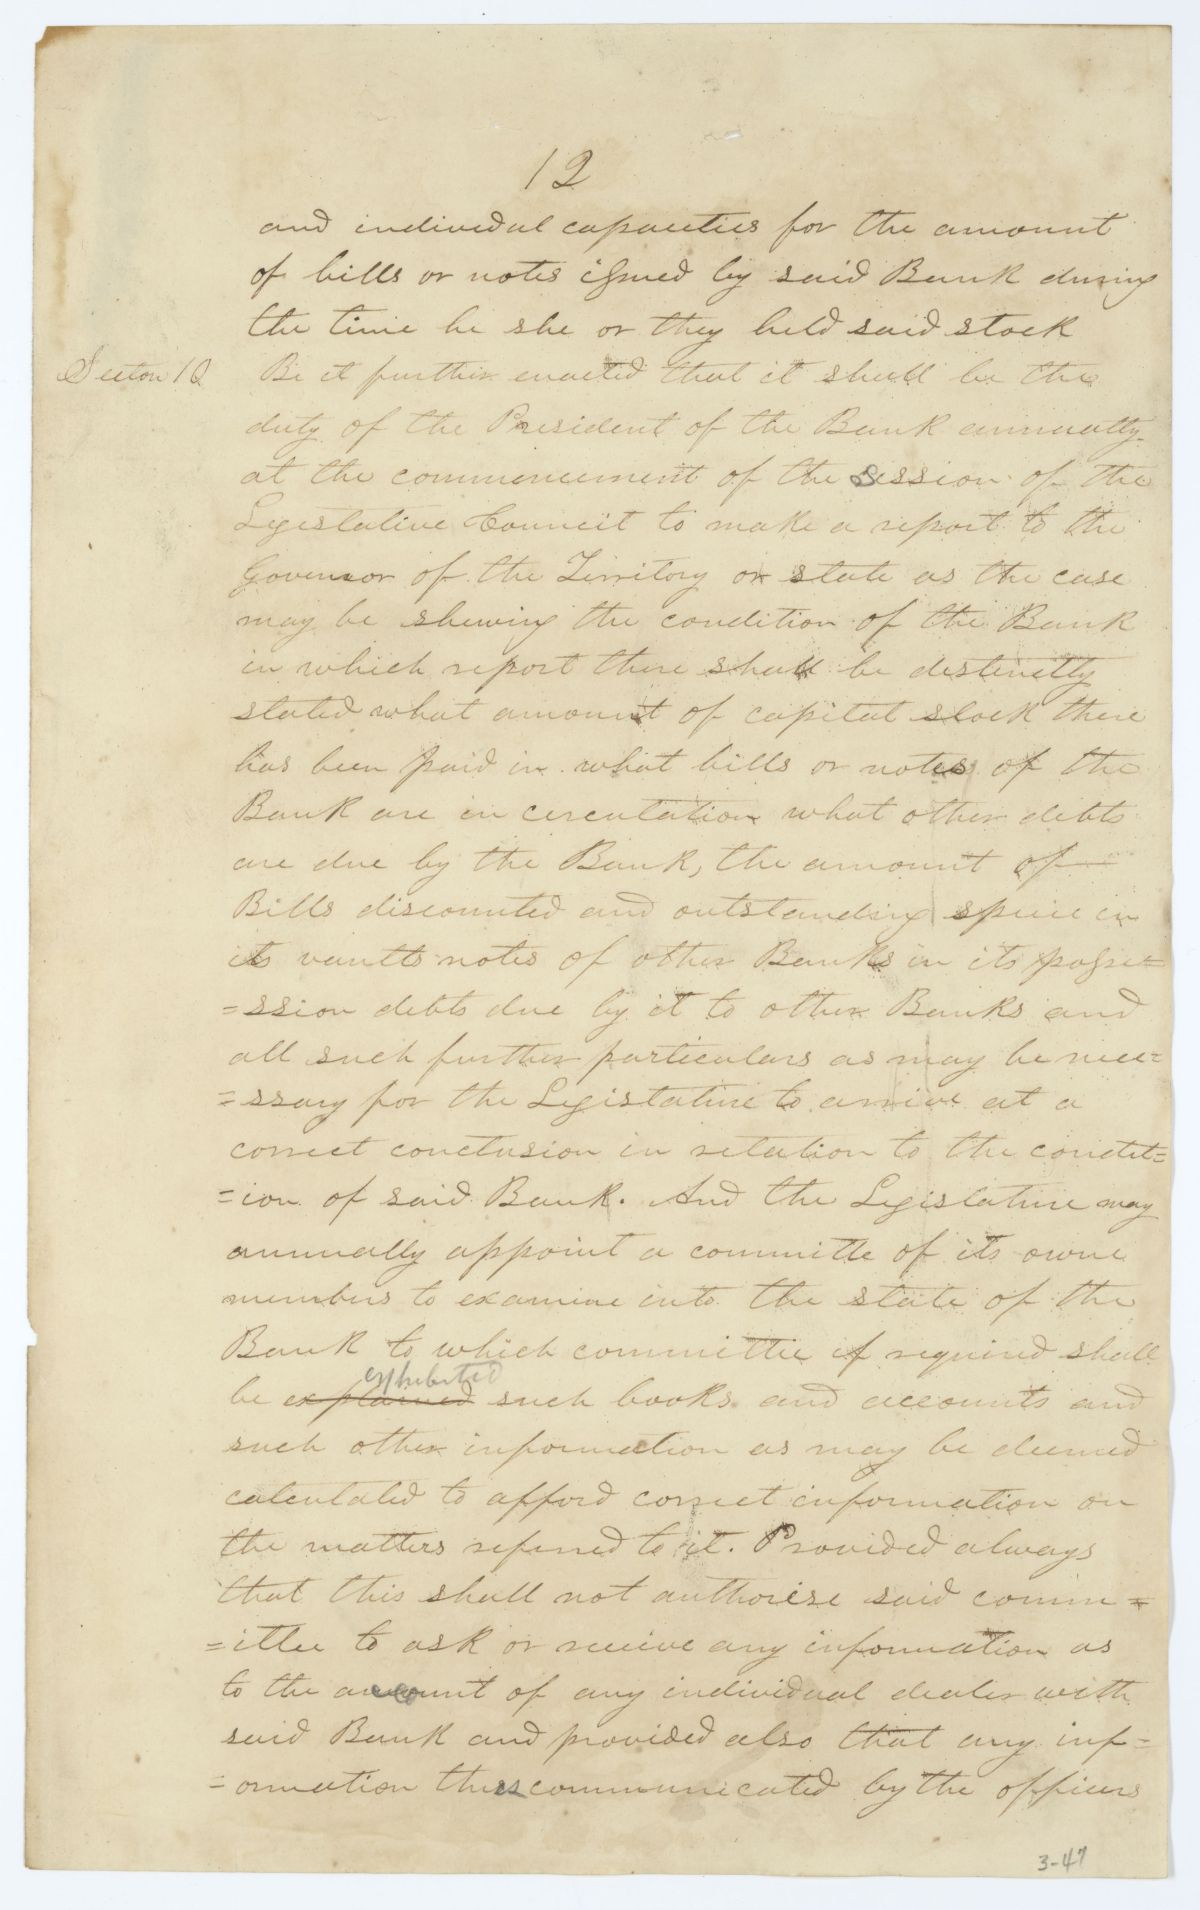 12
and individual capacities for the amount
of bills or notes issued by said Bank during
the time he she or they held said stock
Section 10 Be it further enacted that it shall be the
duty of the President of the Bank annually
at the commencement of the Session of the
Legislative Council to make a report to the
Governor of the Territory or state as the case
may be shewing the condition of the Bank
in which report there shall be distinctly
stated what amount of capital stock there
has been paid in what bills or notes of the
Bank are in circulation what other debts
are due by the Bank, the amount of
Bills discounted and outstanding specie in
its vaults notes of other Banks in its posse=
=ssion debts due by it to other Banks and
all such further particulars as may be nece=
=ssary for the Legislature to arrive at a
correct conclusion in relation to the condit=
=ion of said Bank. And the Legislature may
annually appoint a committe of its owne
members to examine into the state of the
Bank to which committie if required shall
exhibited
be explained such books and accounts and
such other information as may be deemed
calculated to afford correct information on
the matters referred to it. Provided always
that this shall not authorise said comm=
=ittee to ask or receive any information as
to the account of any individual dealer with
said Bank and provided also that any inf=
=ormation thus communicated by the officers
3-47